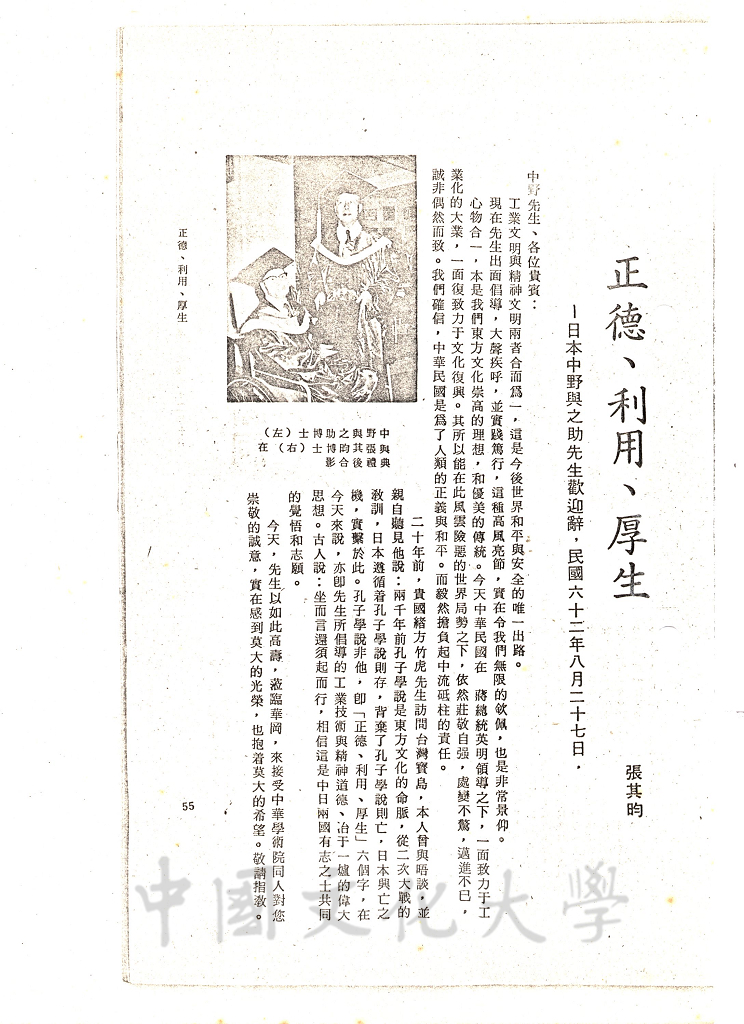 正德、利用、厚生
—日本中野與之助先生歡迎辭，民國六十二年八月二十七日，
張其昀
中野先生、各位貴賓：
工業文明與精神文明兩者合而爲一，這是今後世界和平與安全的唯一出路。
現在先生出面倡導，大聲疾呼，並實踐篤行，這種高風亮節，實在令我們無限的欽佩，也是非常景仰。
心物合一，本是我們東方文化崇高的理想，和優美的傳統。今天中華民國在　蔣總統英明領導之下，一面致力于工
業化的大業，一面復致力于文化復興。其所以能在此風雲險惡的世界局勢之下，依然莊敬自强，處變不驚，邁進不已，
誠非偶然而致。我們確信，中華民國是爲了人類的正義與和平。而毅然擔負起中流砥柱的責任。
二十年前，貴國緒方竹虎先生訪問台灣寶島，本人曾與晤談，並
親自聽見他說：兩千年前孔子學說是東方文化的命脈，從二次大戰的
敎訓，日本遵循着孔子學說則存，背棄了孔子學說則亡，日本興亡之
機，實繫於此。孔子學說非他，卽「正德、利用、厚生」六個字，在
今天來說，亦卽先生所倡導的工業技術與精神道德、冶于一爐的偉大
思想。古人說：坐而言還須起而行，相信這是中日兩國有志之士共同
的覺悟和志願。
今天，先生以如此高壽，蒞臨華岡，來接受中華學術院同人對您
崇敬的誠意，實在感到莫大的光榮，也抱着莫大的希望。敬請指敎。
中野與之助博士（左）
與張其昀博士（右）在
典禮後合影
正德、利用、厚生
55
中國文化大學